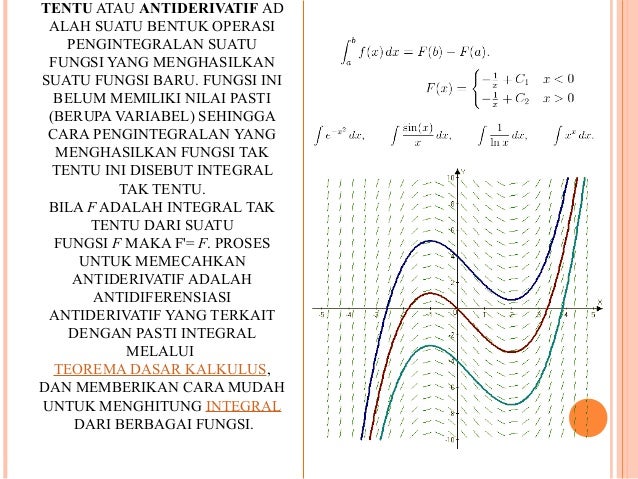 TENTU ATAU ANTIDERIVATIF AD
ALAH SUATU BENTUK OPERASI
PENGINTEGRALAN SUATU
FUNGSI YANG MENGHASILKAN
SUATU FUNGSI BARU. FUNGSI INI
BELUM MEMILIKI NILAI PASTI
(BERUPA VARIABEL) SEHINGGA
CARA PENGINTEGRALAN YANG
MENGHASILKAN FUNGSI TAK
TENTU INI DISEBUT INTEGRAL
TAK TENTU.
BILA F ADALAH INTEGRAL TAK
TENTU DARI SUATU
FUNGSI F MAKA F'= F. PROSES
UNTUK MEMECAHKAN
ANTIDERIVATIF ADALAH
ANTIDIFERENSIASI
ANTIDERIVATIF YANG TERKAIT
DENGAN PASTI INTEGRAL
MELALUI
TEOREMA DASAR KALKULUS,
DAN MEMBERIKAN CARA MUDAH
UNTUK MENGHITUNG INTEGRAL
DARI BERBAGAI FUNGSI.
∫_a^b f(x) dx = F(b) − F(a).
F(x) = { −1/x + C₁  x < 0
−1/x + C₂  x > 0
∫ e^{−x²} dx,  ∫ sin(x)/x dx,  ∫ 1/ln x dx,  ∫ x^x dx.
Y
10
8
6
4
2
-5 -4 -3 -2 -1 1 2 3 4 5 X
-2
-4
-6
-8
-10